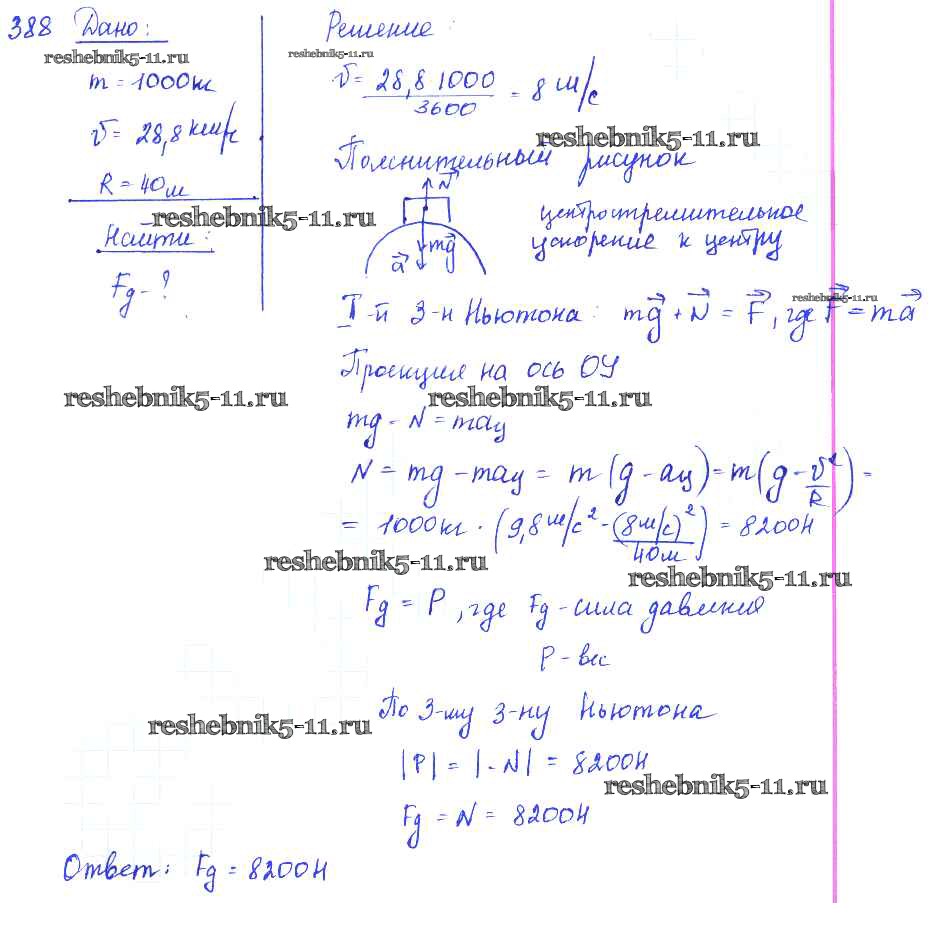 388 Дано:
reshebnik5-11.ru
m = 1000кг
v = 28,8 км/ч
R = 40м
reshebnik5-11.ru
Найти:
Fg - ?
Решение:
reshebnik5-11.ru
v = 28,8 1000 / 3600 = 8 м/с
reshebnik5-11.ru
Пояснительный рисунок
N
mg
a
центростремительное
ускорение к центру
reshebnik5-11.ru
I-й З-н Ньютона: mg + N = F, где F = ma
Проекция на ось ОУ
reshebnik5-11.ru
reshebnik5-11.ru
mg - N = maц
N = mg - maц = m (g - aц) = m (g - v²/R) =
= 1000кг · (9,8 м/с² - (8м/с)²/40м) = 8200Н
reshebnik5-11.ru
reshebnik5-11.ru
Fg = P, где Fg - сила давления
P - вес
По 3-му З-ну Ньютона
reshebnik5-11.ru
|P| = |-N| = 8200Н
reshebnik5-11.ru
Fg = N = 8200Н
Ответ: Fg = 8200Н